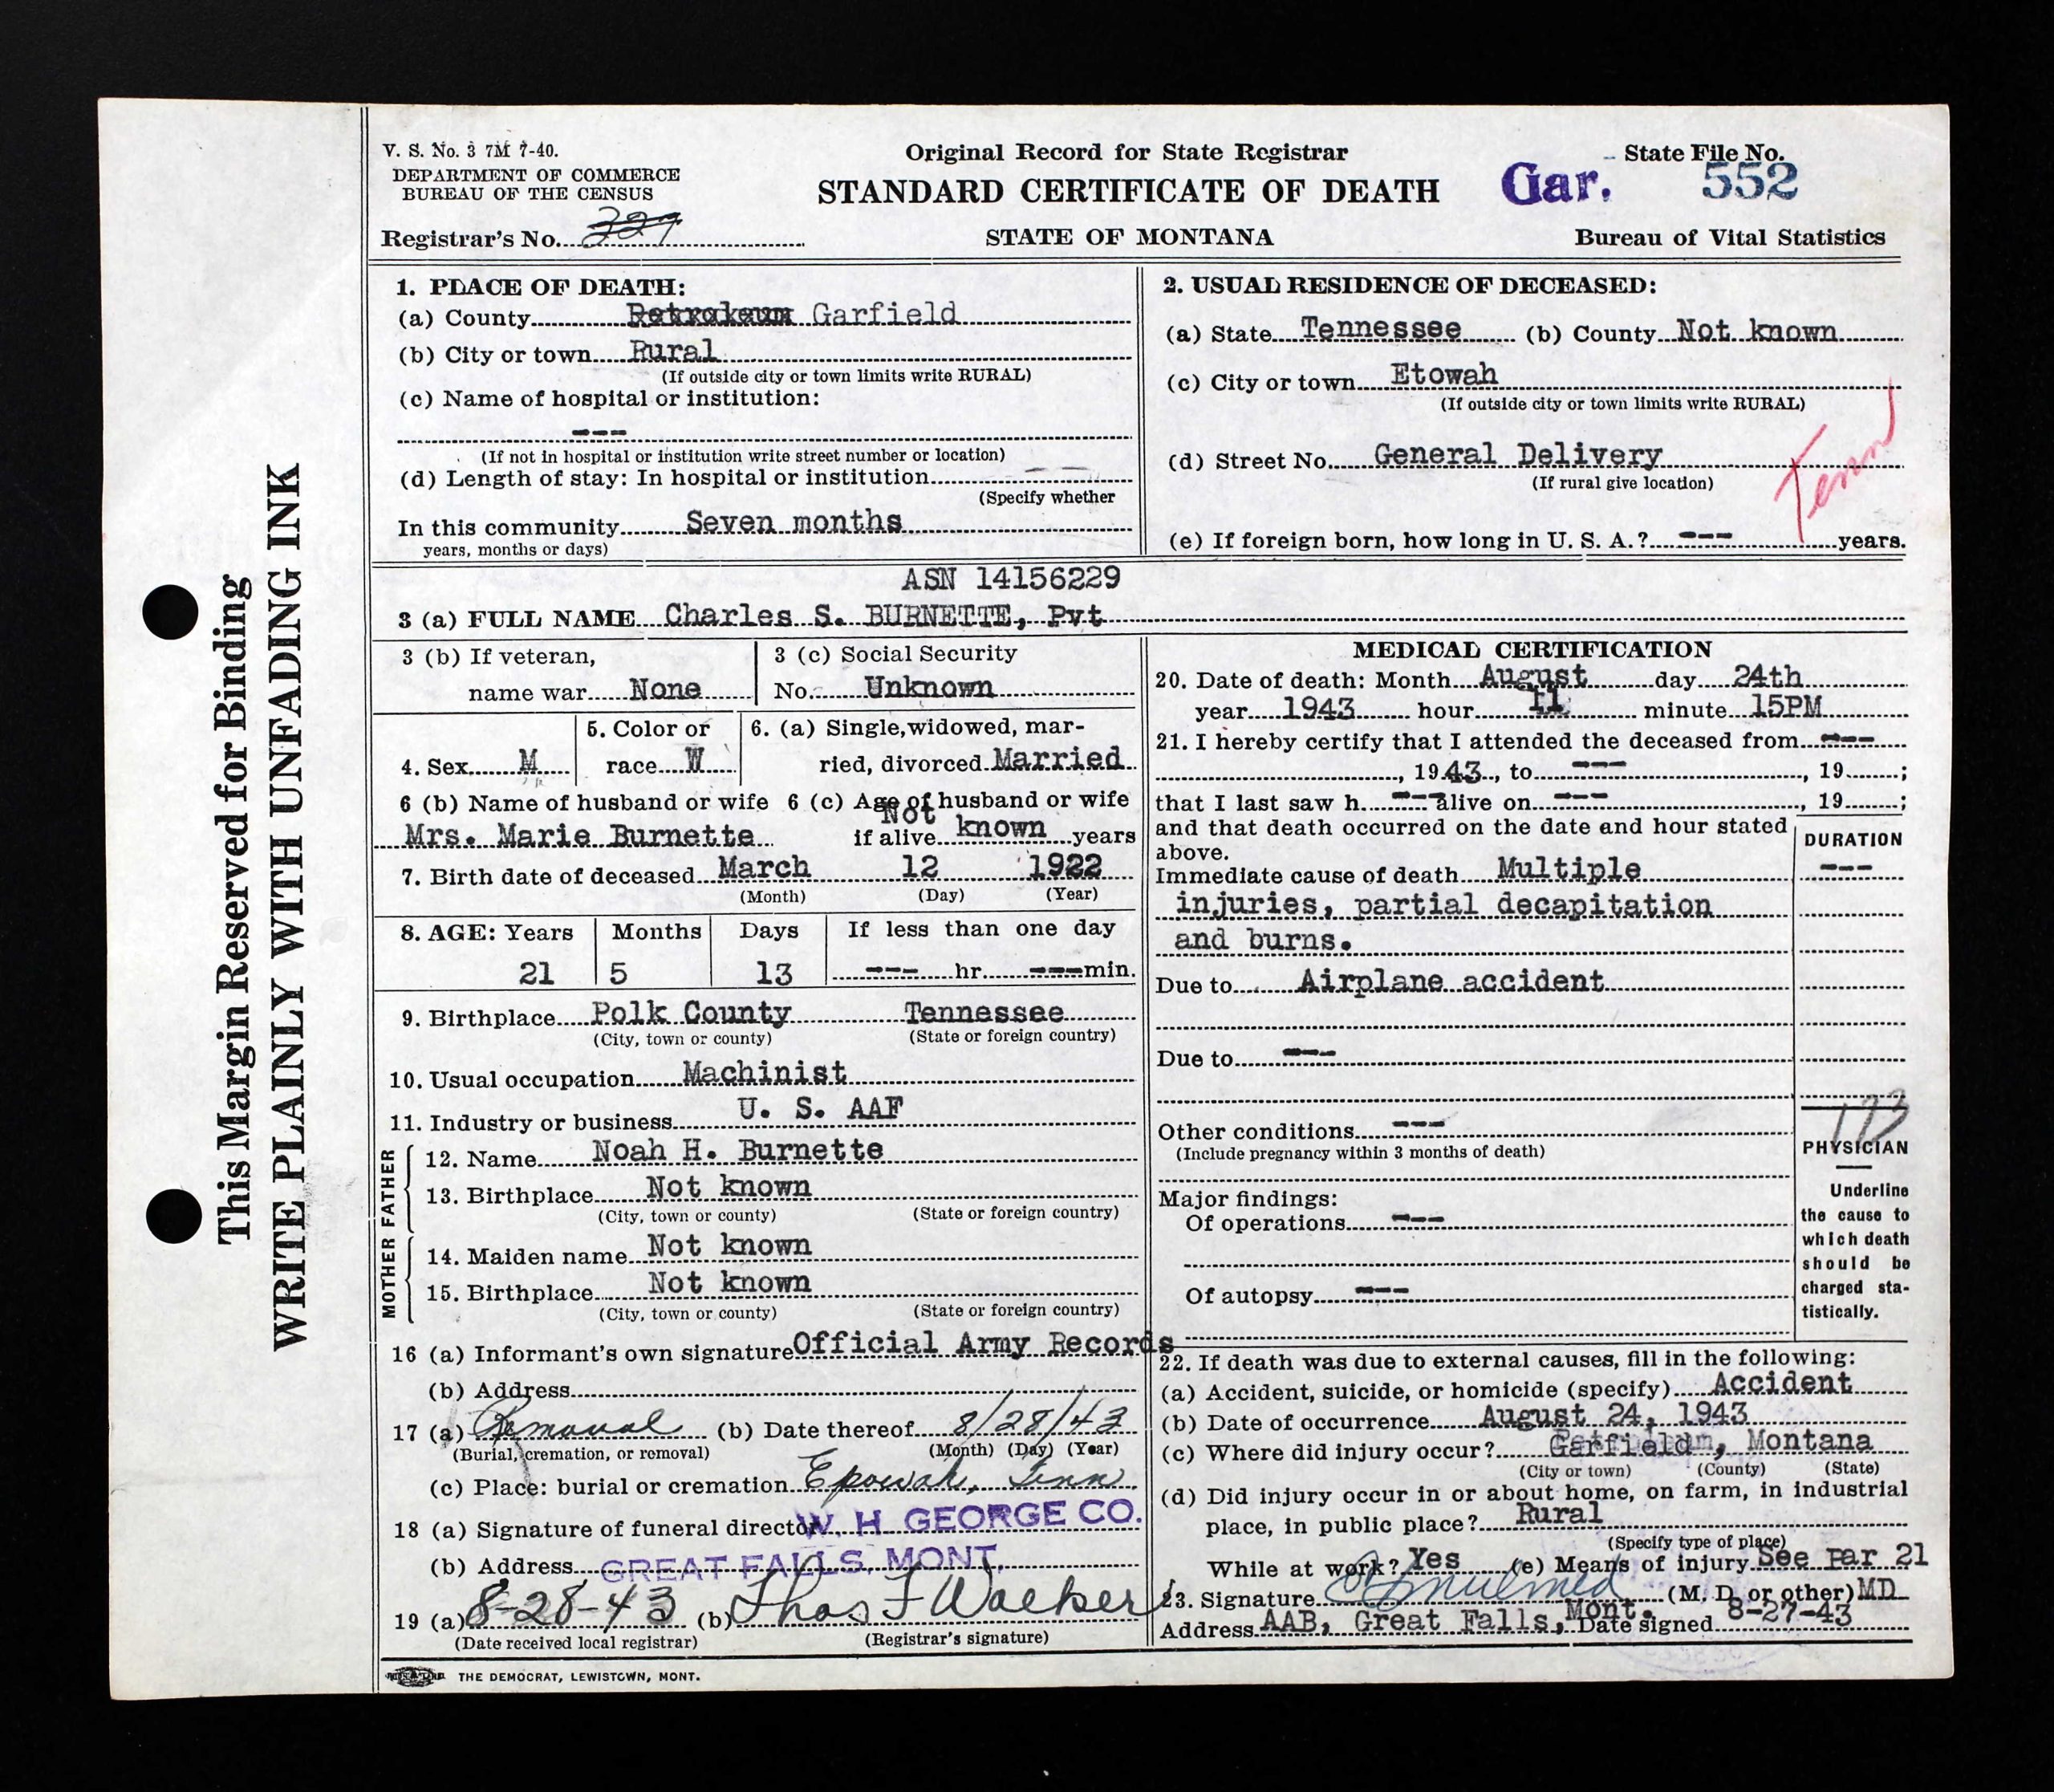 This Margin Reserved for Binding
WRITE PLAINLY WITH UNFADING INK
V. S. No. 3 7M 7-40.
DEPARTMENT OF COMMERCE
BUREAU OF THE CENSUS
Registrar's No. 327
Original Record for State Registrar
STANDARD CERTIFICATE OF DEATH
STATE OF MONTANA
Gar.
State File No.
552
Bureau of Vital Statistics
1. PLACE OF DEATH:
(a) County Petroleum Garfield
(b) City or town Rural
(If outside city or town limits write RURAL)
(c) Name of hospital or institution:
---
(If not in hospital or institution write street number or location)
(d) Length of stay: In hospital or institution
(Specify whether
In this community Seven months
years, months or days)
2. USUAL RESIDENCE OF DECEASED:
(a) State Tennessee (b) County Not known
(c) City or town Etowah
(If outside city or town limits write RURAL)
(d) Street No. General Delivery
(If rural give location)
Tenn
(e) If foreign born, how long in U. S. A.? --- years.
ASN 14156229
3 (a) FULL NAME Charles S. BURNETTE, Pvt
3 (b) If veteran,
name war None
3 (c) Social Security
No. Unknown
4. Sex M
5. Color or
race W
6. (a) Single, widowed, mar-
ried, divorced Married
6 (b) Name of husband or wife 6 (c) Age of husband or wife
Mrs. Marie Burnette if alive Not known years
7. Birth date of deceased March 12 1922
(Month) (Day) (Year)
8. AGE: Years Months Days If less than one day
21 5 13 --- hr. --- min.
9. Birthplace Polk County Tennessee
(City, town or county) (State or foreign country)
10. Usual occupation Machinist
11. Industry or business U. S. AAF
FATHER
12. Name Noah H. Burnette
13. Birthplace Not known
(City, town or county) (State or foreign country)
MOTHER
14. Maiden name Not known
15. Birthplace Not known
(City, town or county) (State or foreign country)
16 (a) Informant's own signature Official Army Records
(b) Address
17 (a) Removal (b) Date thereof 8/28/43
(Burial, cremation, or removal) (Month) (Day) (Year)
(c) Place: burial or cremation Epowah, Tenn.
18 (a) Signature of funeral director W. H. GEORGE CO.
(b) Address GREAT FALLS, MONT.
19 (a) 8-28-43 (b) Thos F Walker
(Date received local registrar) (Registrar's signature)
MEDICAL CERTIFICATION
20. Date of death: Month August day 24th
year 1943 hour 11 minute 15PM
21. I hereby certify that I attended the deceased from ---
, 1943, to ---, 19 ;
that I last saw h --- alive on ---, 19 ;
and that death occurred on the date and hour stated
above.
DURATION
Immediate cause of death Multiple ---
injuries, partial decapitation
and burns.
Due to Airplane accident
Due to ---
Other conditions ---
(Include pregnancy within 3 months of death)
Major findings:
Of operations ---
Of autopsy ---
173
PHYSICIAN
Underline
the cause to
which death
should be
charged sta-
tistically.
22. If death was due to external causes, fill in the following:
(a) Accident, suicide, or homicide (specify) Accident
(b) Date of occurrence August 24, 1943
(c) Where did injury occur? Garfield, Montana
(City or town) (County) (State)
(d) Did injury occur in or about home, on farm, in industrial
place, in public place? Rural
(Specify type of place)
While at work? Yes (e) Means of injury See Par 21
23. Signature (M. D. or other) MD
Address AAB, Great Falls, Mont. Date signed 8-27-43
THE DEMOCRAT, LEWISTOWN, MONT.